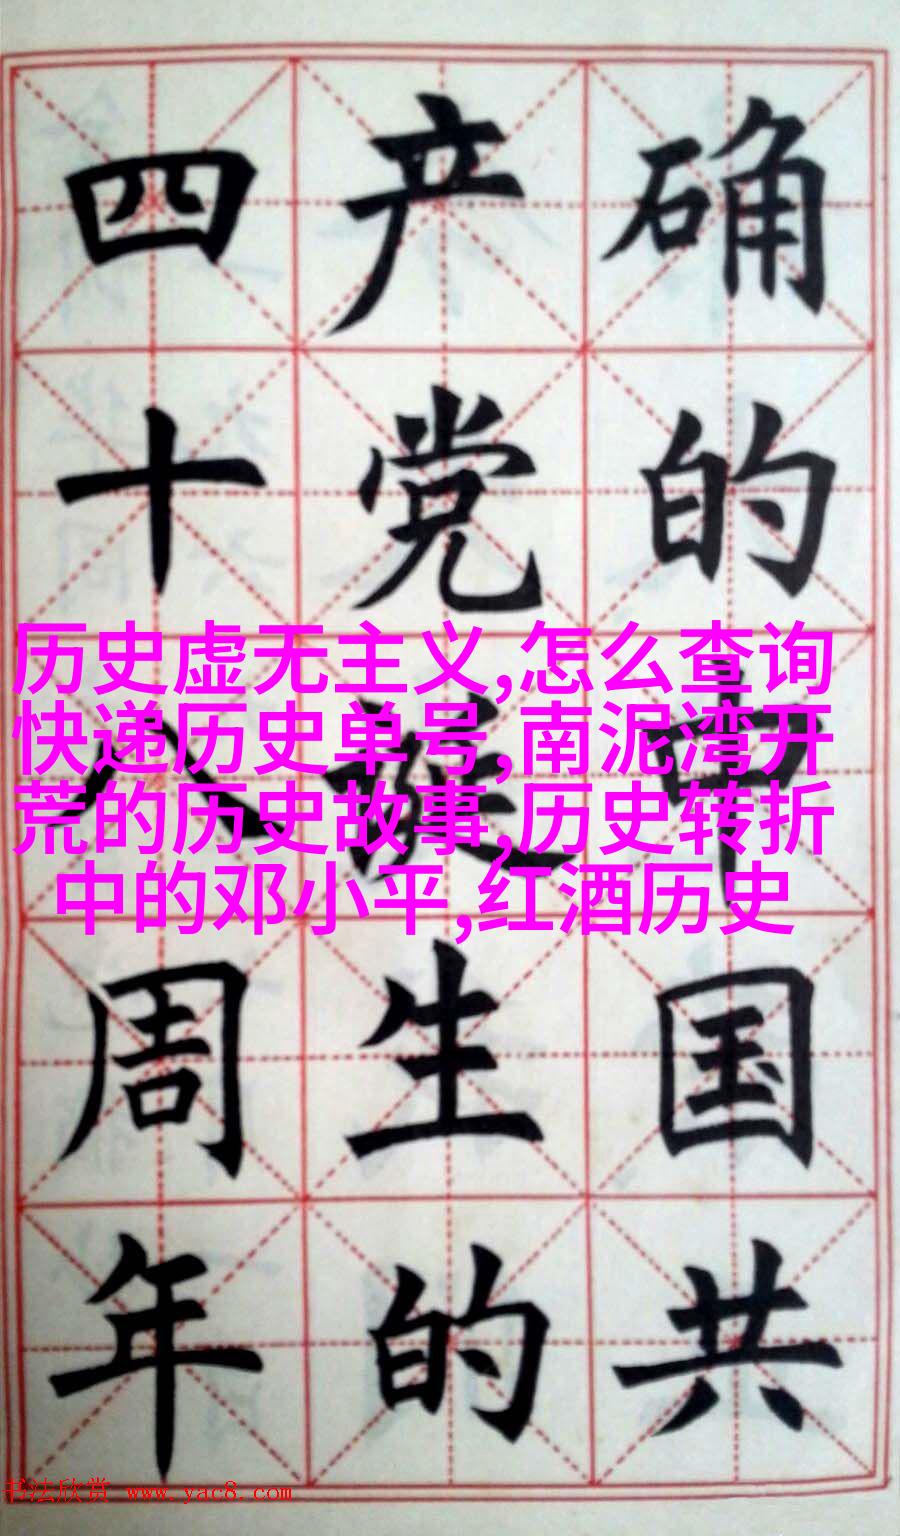 确的中国共
产党诞生的
四十八周年
历史虚无主义,怎么查询
快递历史单号,南泥湾开
荒的历史故事,历史转折
中的邓小平,红酒历史
书法欣赏 www.yac8.com